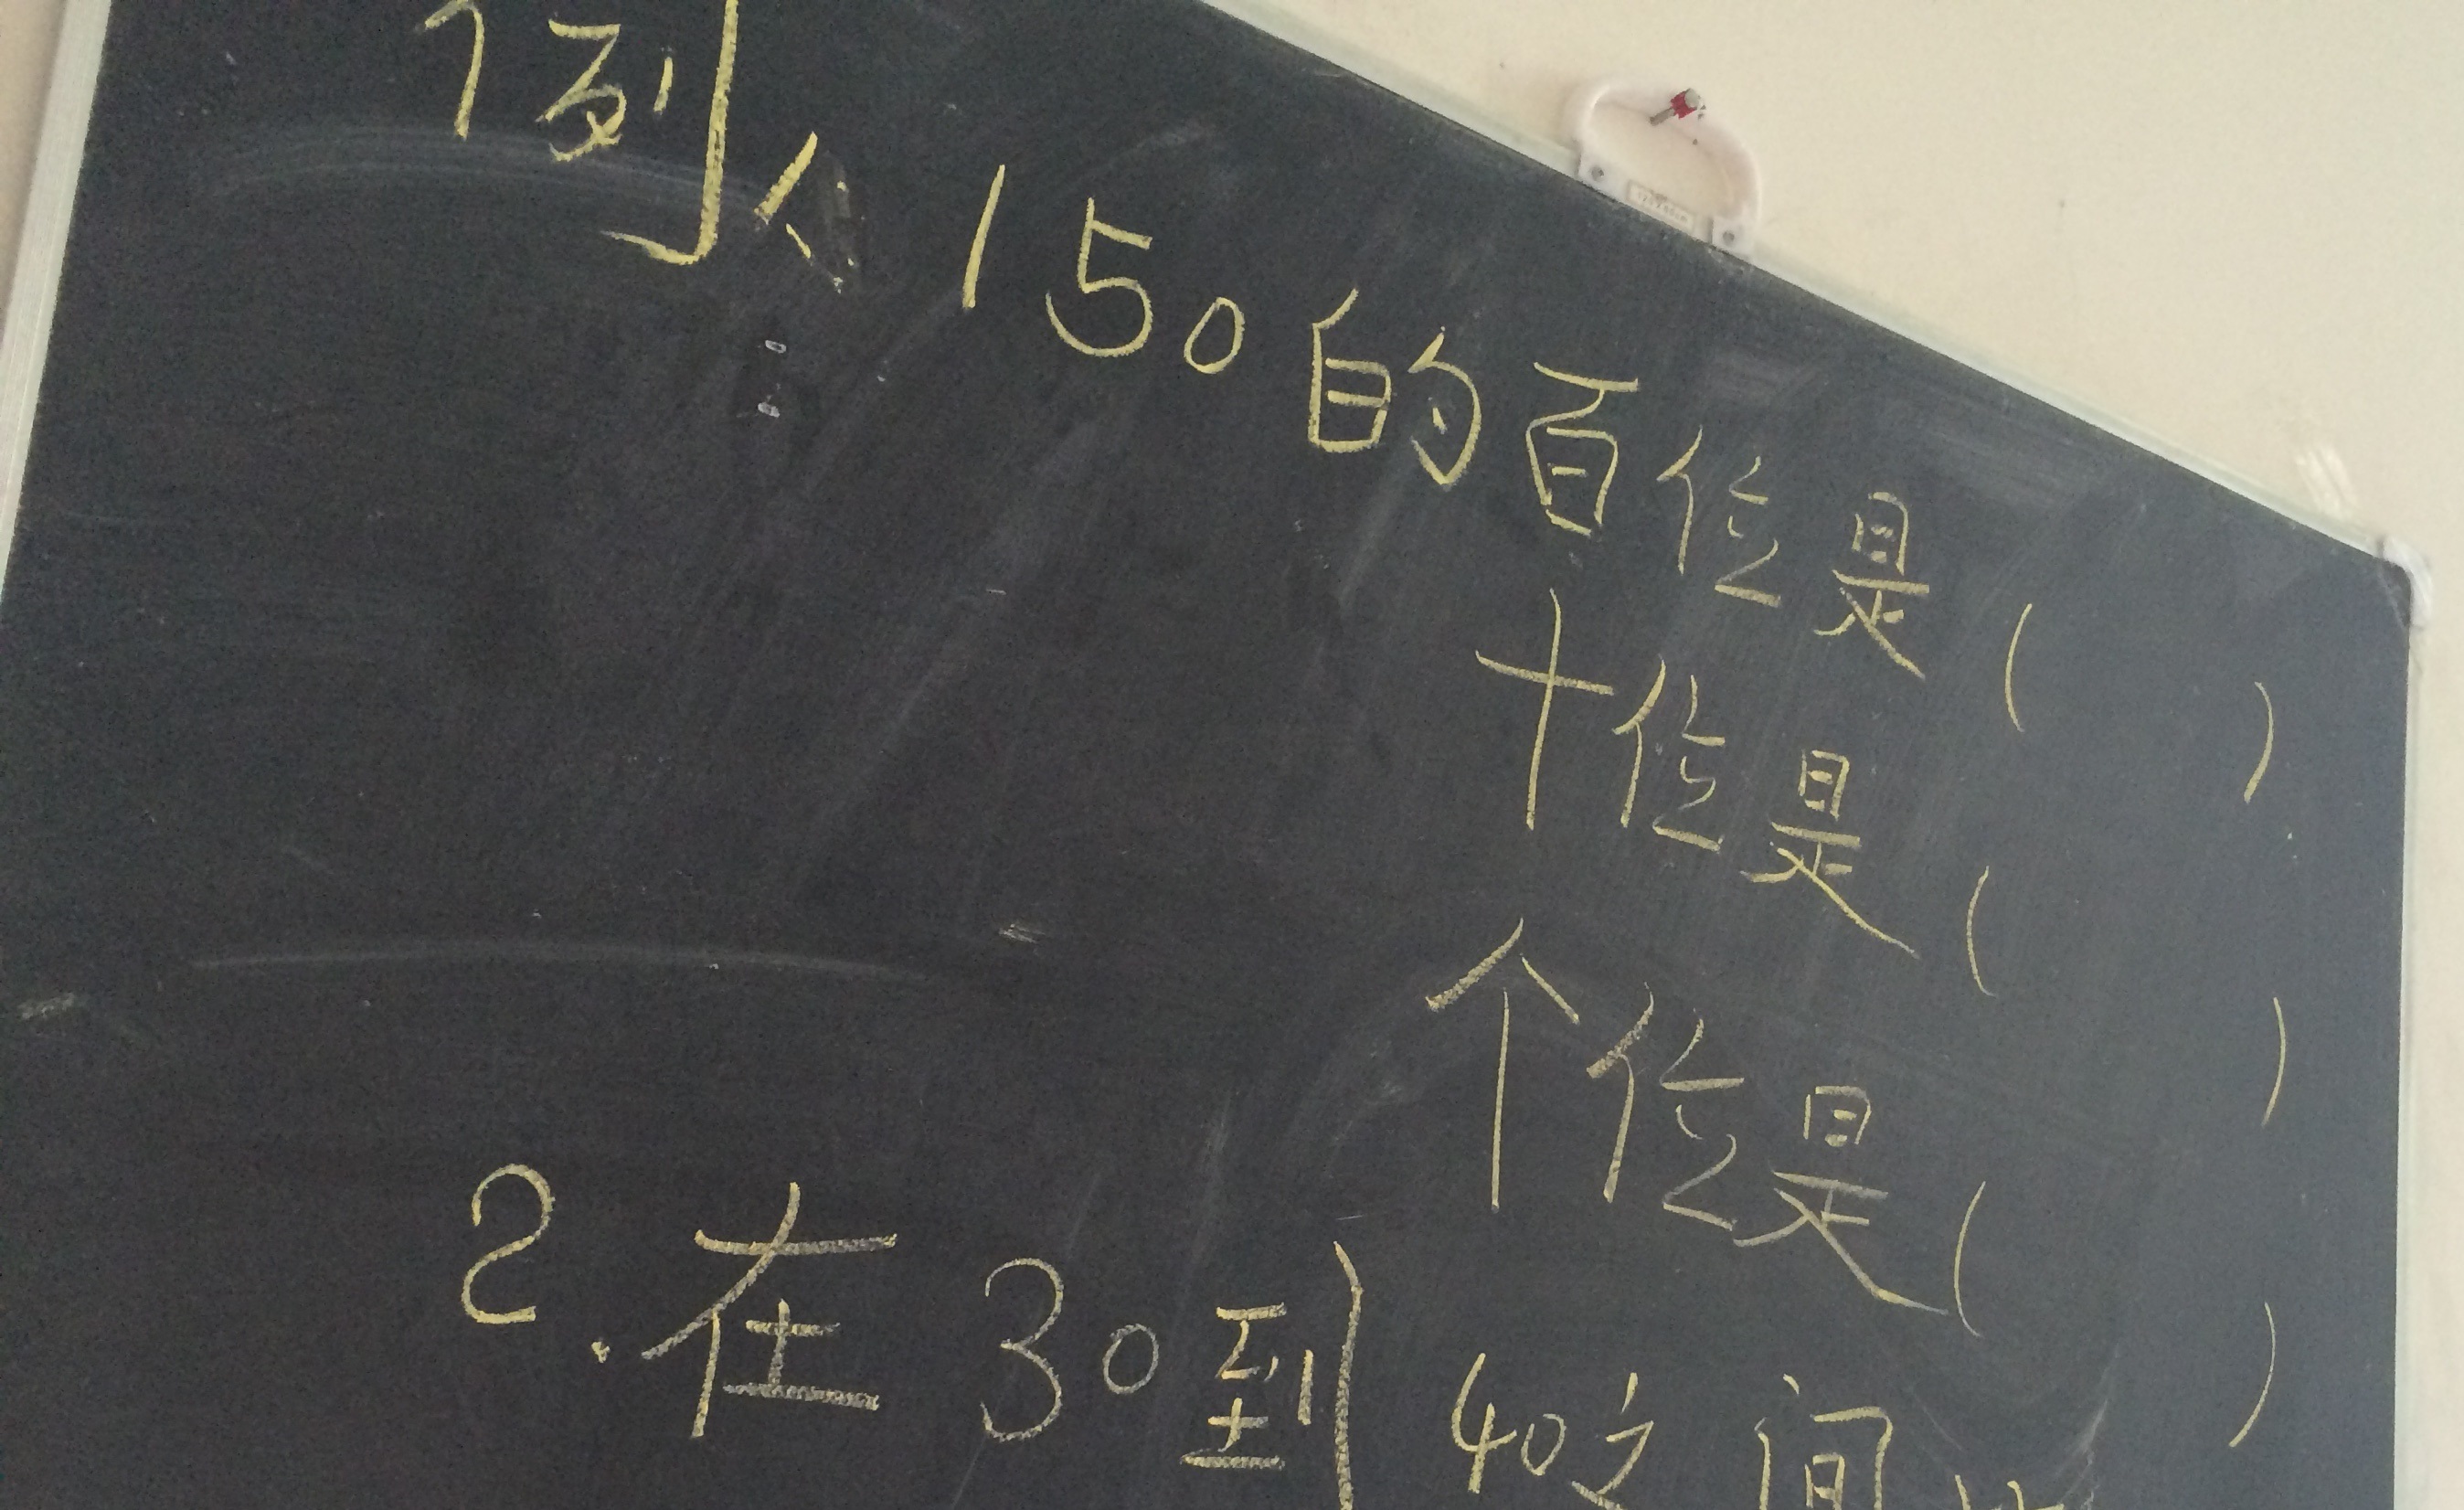 例
150的百位是(    )
十位是(    )
个位是(    )
2.在30到40之间